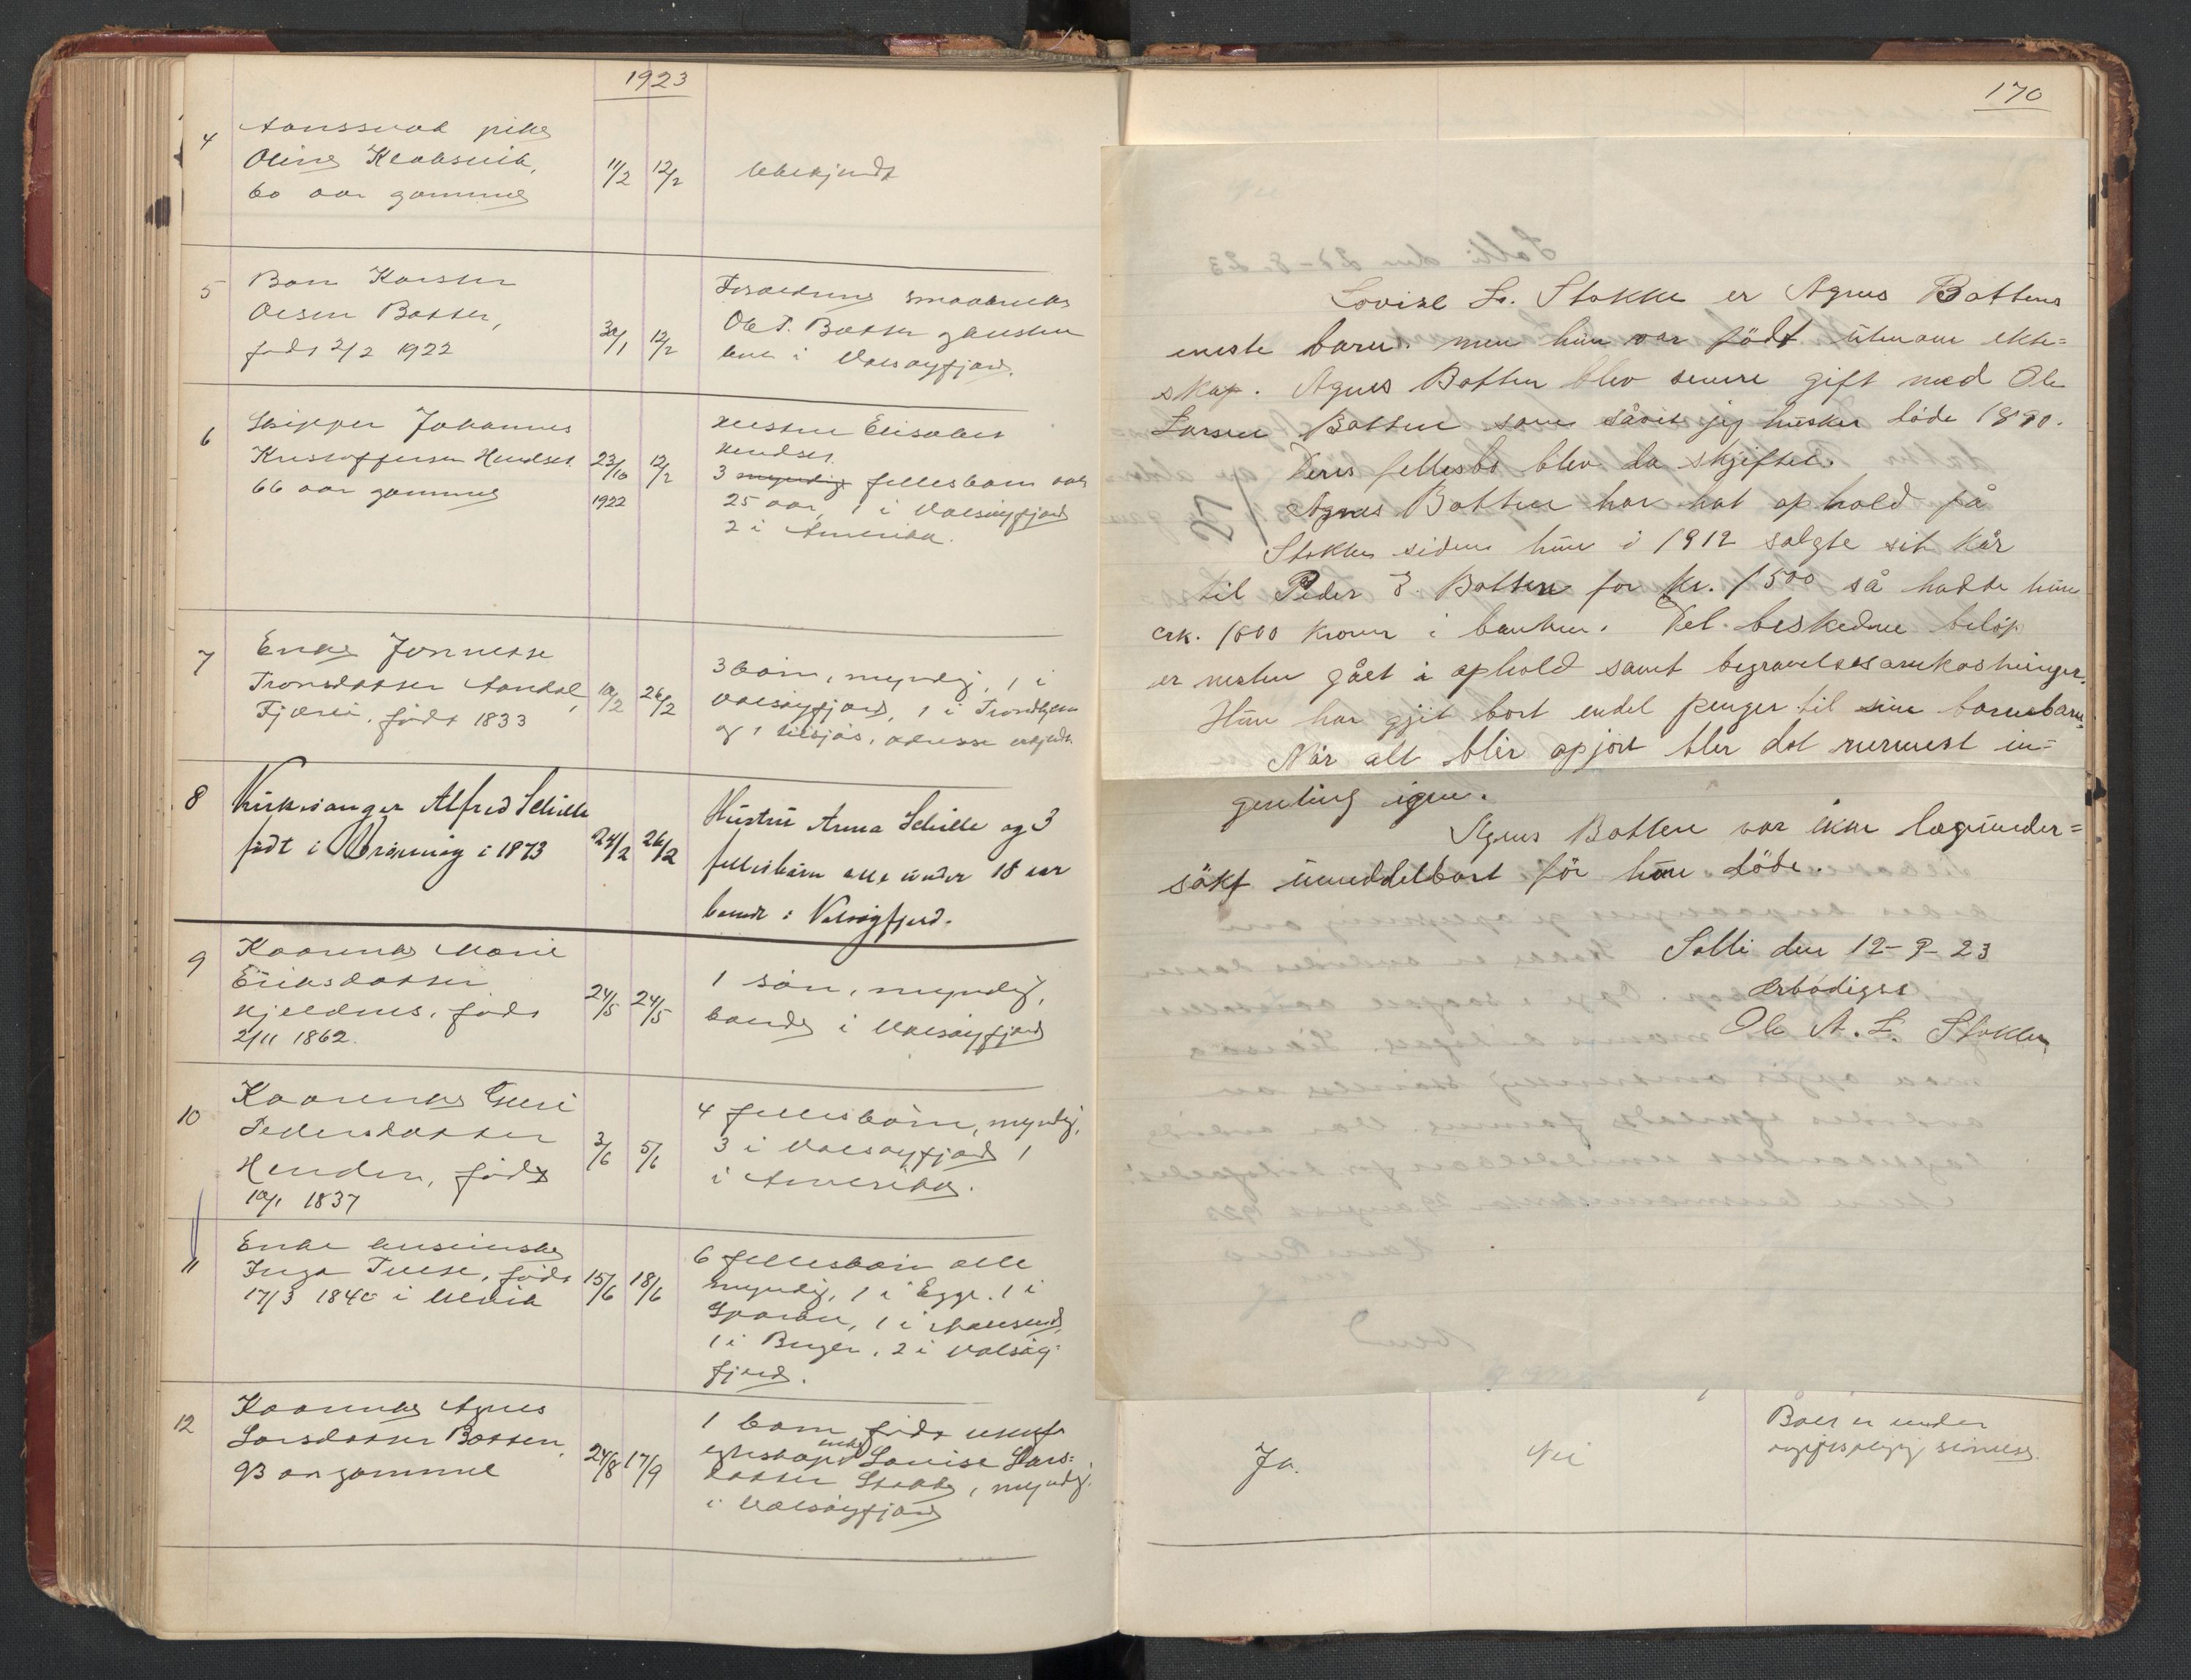 1923
4
pike
Oline Klaksvik,
60 aar gammel
11/2 12/2
Ubekjendt
5
Barn Karsten
Olsen Botten,
født 2/2 1922
30/1 12/2
Forældrene smaabruker
Ole P. Botten g hustru
i Valsøyfjord.
6
Skipper Johannes
Kristoffersen Hendset
66 aar gammel
23/10 1922
12/2
Hustru Elisabet
Hendset
3 myndig fellesbarn over
25 aar, 1 i Valsøyfjord
2 i Amerika.
7
Enke Jonnette
Tronsdatter Aandal,
Fjærli, født 1833
10/2 26/2
3 børn, myndig, 1 i
Valsøyfjord, 1 i Trondhjem
og 1 tilsjøs, adresse ukjendt.
8
Kirkesanger Alfred Schille
født i i 1873
24/2 26/2
Hustru Anna Schille og 3
fellesbørn alle under 18 aar
boende i Valsøyfjord.
9
Kaarenke Marie
Eriksdatter
Kjeldnes, født
2/11 1862.
24/5 24/5
1 søn, myndig,
boende i Valsøyfjord
10
Kaarenke Guri
Pedersdatter
Henden, født
10/1 1837
3/6 5/6
4 fellesbørn, myndig,
3 i Valsøyfjord 1
i Amerika.
11
Enke
Inga født
17/3 1840 i
15/6 18/6
6 fellesbørn alle
myndig, 1 i Egge. 1 i
Sparbu, 1 i
1 i Bergen, 2 i Valsøy-
fjord.
12
Kaarenke Agnes
Larsdatter Botten,
93 aar gammel
24/8 17/9
1 barn født utenfor
egteskap Lovise Lars-
datter Stokke, myndig.
i Valsøyfjord
170
Lovise L. Stokke er Agnes Bottens
eneste barn. men hun var født utenom ekte=
skap. Agnes Botten blev senere gift med Ole
Larsen Botten som såvit jeg husker døde 1890.
Deres fellesbo blev da skjiftet.
Agnes Botten har hat ophold på
Stokke siden hun i 1912 solgte sit kår
til Peder E. Botten for kr. 1500 så hadde hun
crk. 1000 kroner i banken. Det beskedne beløp
er nesten gået i ophold samt begravelsesomkostninger.
Hun har gjit bort endel penger til sine barnebarn.
Når alt blir opjort blir det nermest in=
genting igen.
Agnes Botten var ikke lægunder=
søkt umiddelbart før hun døde.
Solli den 12-9-23
Ærbødigst
Ole A. L. Stokke
Ja.
Nei
Boet er under
avgiftspligtig størrelse.